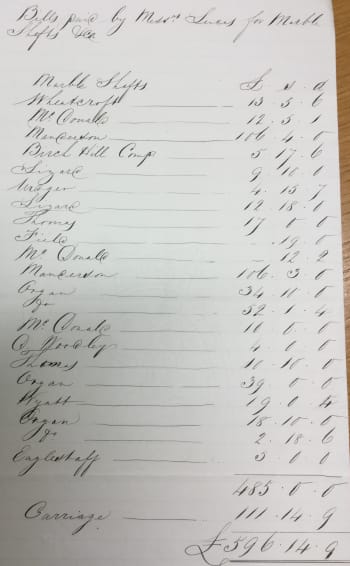 Bills paid by Messrs Lucas for Marble
Shafts &ca
Marble Shafts £ s d
Wheatcroft 13 . 5 . 6
McDonald 12 . 5 . 1
Manderson 106 . 4 . 0
Birch Hill Comp 5 . 17 . 6
Sizard 9 . 10 . 0
Organ 4 . 15 . 7
Sizard 12 . 18 . 0
Thomas 17 0 0
Field . 19 . 0
Mc Donald — 12 . 2
Manderson 106 . 3 0
Organ 34 . 10 . 0
Do 52 . 1 . 4
Mc Donald 10 . 0 . 0
Woodley 4 . 0 . 0
Thomas 10 . 10 . 0
Organ 39 . 0 0
Wyatt 19 . 0 . 4
Organ 18 . 10 . 0
Do 2 . 18 . 6
Eaglestaff 3 . 0 0
485 . 0 . 0
Carriage 111 . 14 . 9
£596 . 14 . 9